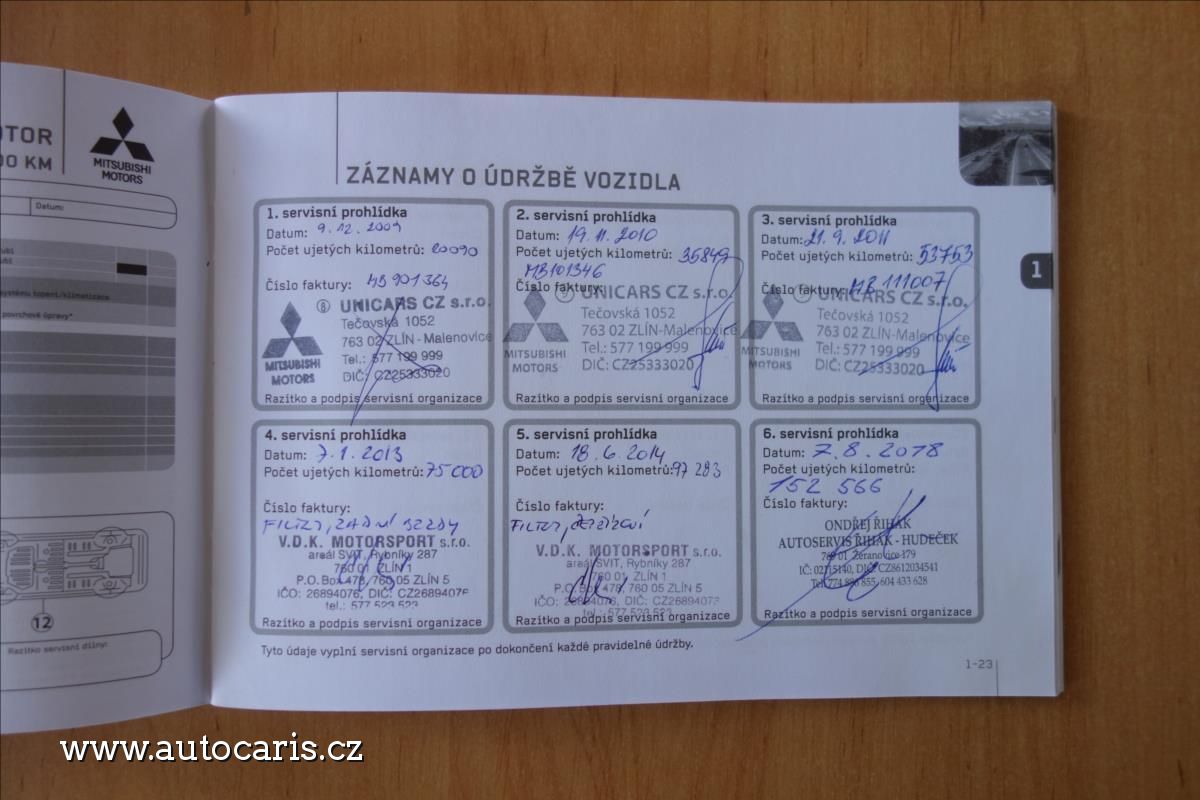 OTOR
00 KM
MITSUBISHI
MOTORS
Datum:
systému topení/klimatizace
povrchové úpravy*
12
Razítko servisní dílny:
ZÁZNAMY O ÚDRŽBĚ VOZIDLA
1
1. servisní prohlídka
Datum: 9.12.2009
Počet ujetých kilometrů: 20090
Číslo faktury: MB901364
8 UNICARS CZ s.r.o.
Tečovská 1052
763 02 ZLÍN-Malenovice
Tel.: 577 199 999
DIČ: CZ25333020
MITSUBISHI
MOTORS
Razítko a podpis servisní organizace
2. servisní prohlídka
Datum: 19.11.2010
Počet ujetých kilometrů: 35849
MB101346
Číslo faktury:
9 UNICARS CZ s.r.o.
Tečovská 1052
763 02 ZLÍN-Malenovice
Tel.: 577 199 999
DIČ: CZ25333020
MITSUBISHI
MOTORS
Razítko a podpis servisní organizace
3. servisní prohlídka
Datum: 21.9.2011
Počet ujetých kilometrů: 53753
Číslo faktury: MB 111007
9 UNICARS CZ s.r.o.
Tečovská 1052
763 02 ZLÍN-Malenovice
Tel.: 577 199 999
DIČ: CZ25333020
MITSUBISHI
MOTORS
Razítko a podpis servisní organizace
4. servisní prohlídka
Datum: 7.1.2013
Počet ujetých kilometrů: 75000
Číslo faktury:
FILTRY, ZADNÍ BRZDY
V.D.K. MOTORSPORT s.r.o.
areál SVIT, Rybníky 287
760 01 ZLÍN 1
P.O. Box 478, 760 05 ZLÍN 5
IČO: 26894076, DIČ: CZ26894076
tel.: 577 523 523
Razítko a podpis servisní organizace
5. servisní prohlídka
Datum: 18.6.2014
Počet ujetých kilometrů: 97 283
Číslo faktury:
FILTRY,
V.D.K. MOTORSPORT s.r.o.
areál SVIT, Rybníky 287
760 01 ZLÍN 1
P.O. Box 478, 760 05 ZLÍN 5
IČO: 26894076, DIČ: CZ26894076
tel.: 577 523 523
Razítko a podpis servisní organizace
6. servisní prohlídka
Datum: 7.8.2018
Počet ujetých kilometrů:
152 566
Číslo faktury:
ONDŘEJ ŘIHÁK
AUTOSERVIS ŘIHÁK - HUDEČEK
769 01 Žeranovice 179
IČ: 02115140, DIČ: CZ8612034541
Razítko a podpis servisní organizace
Tyto údaje vyplní servisní organizace po dokončení každé pravidelné údržby.
1-23
www.autocaris.cz